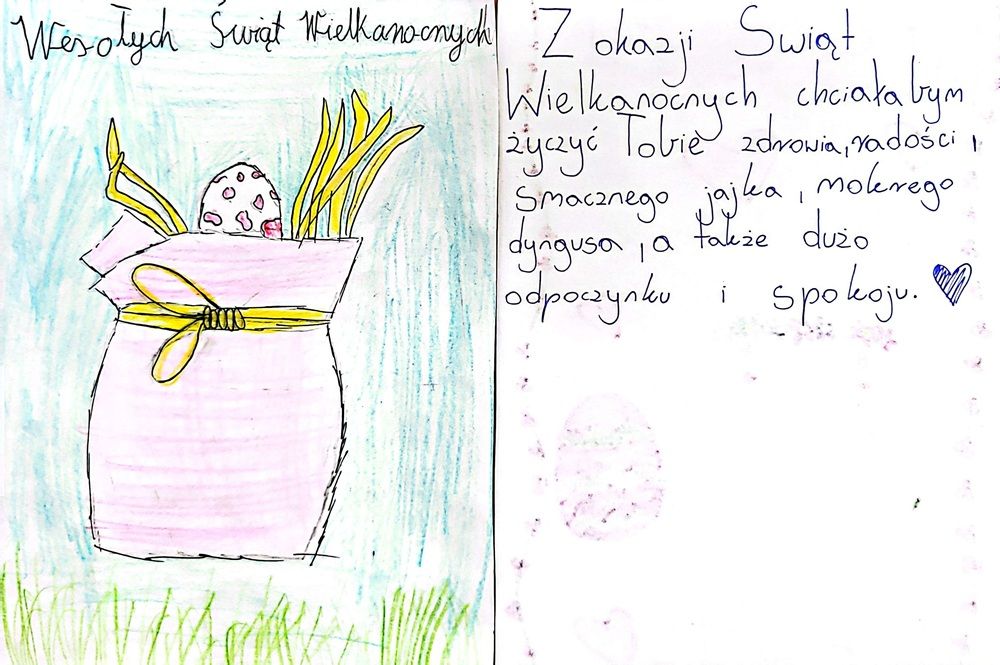 Wesołych Świąt Wielkanocnych
Z okazji Swiąt
Wielkanocnych chciałabym
życzyć Tobie zdrowia, radości,
smacznego jajka, mokrego
dyngusa, a także dużo
odpoczynku i spokoju.